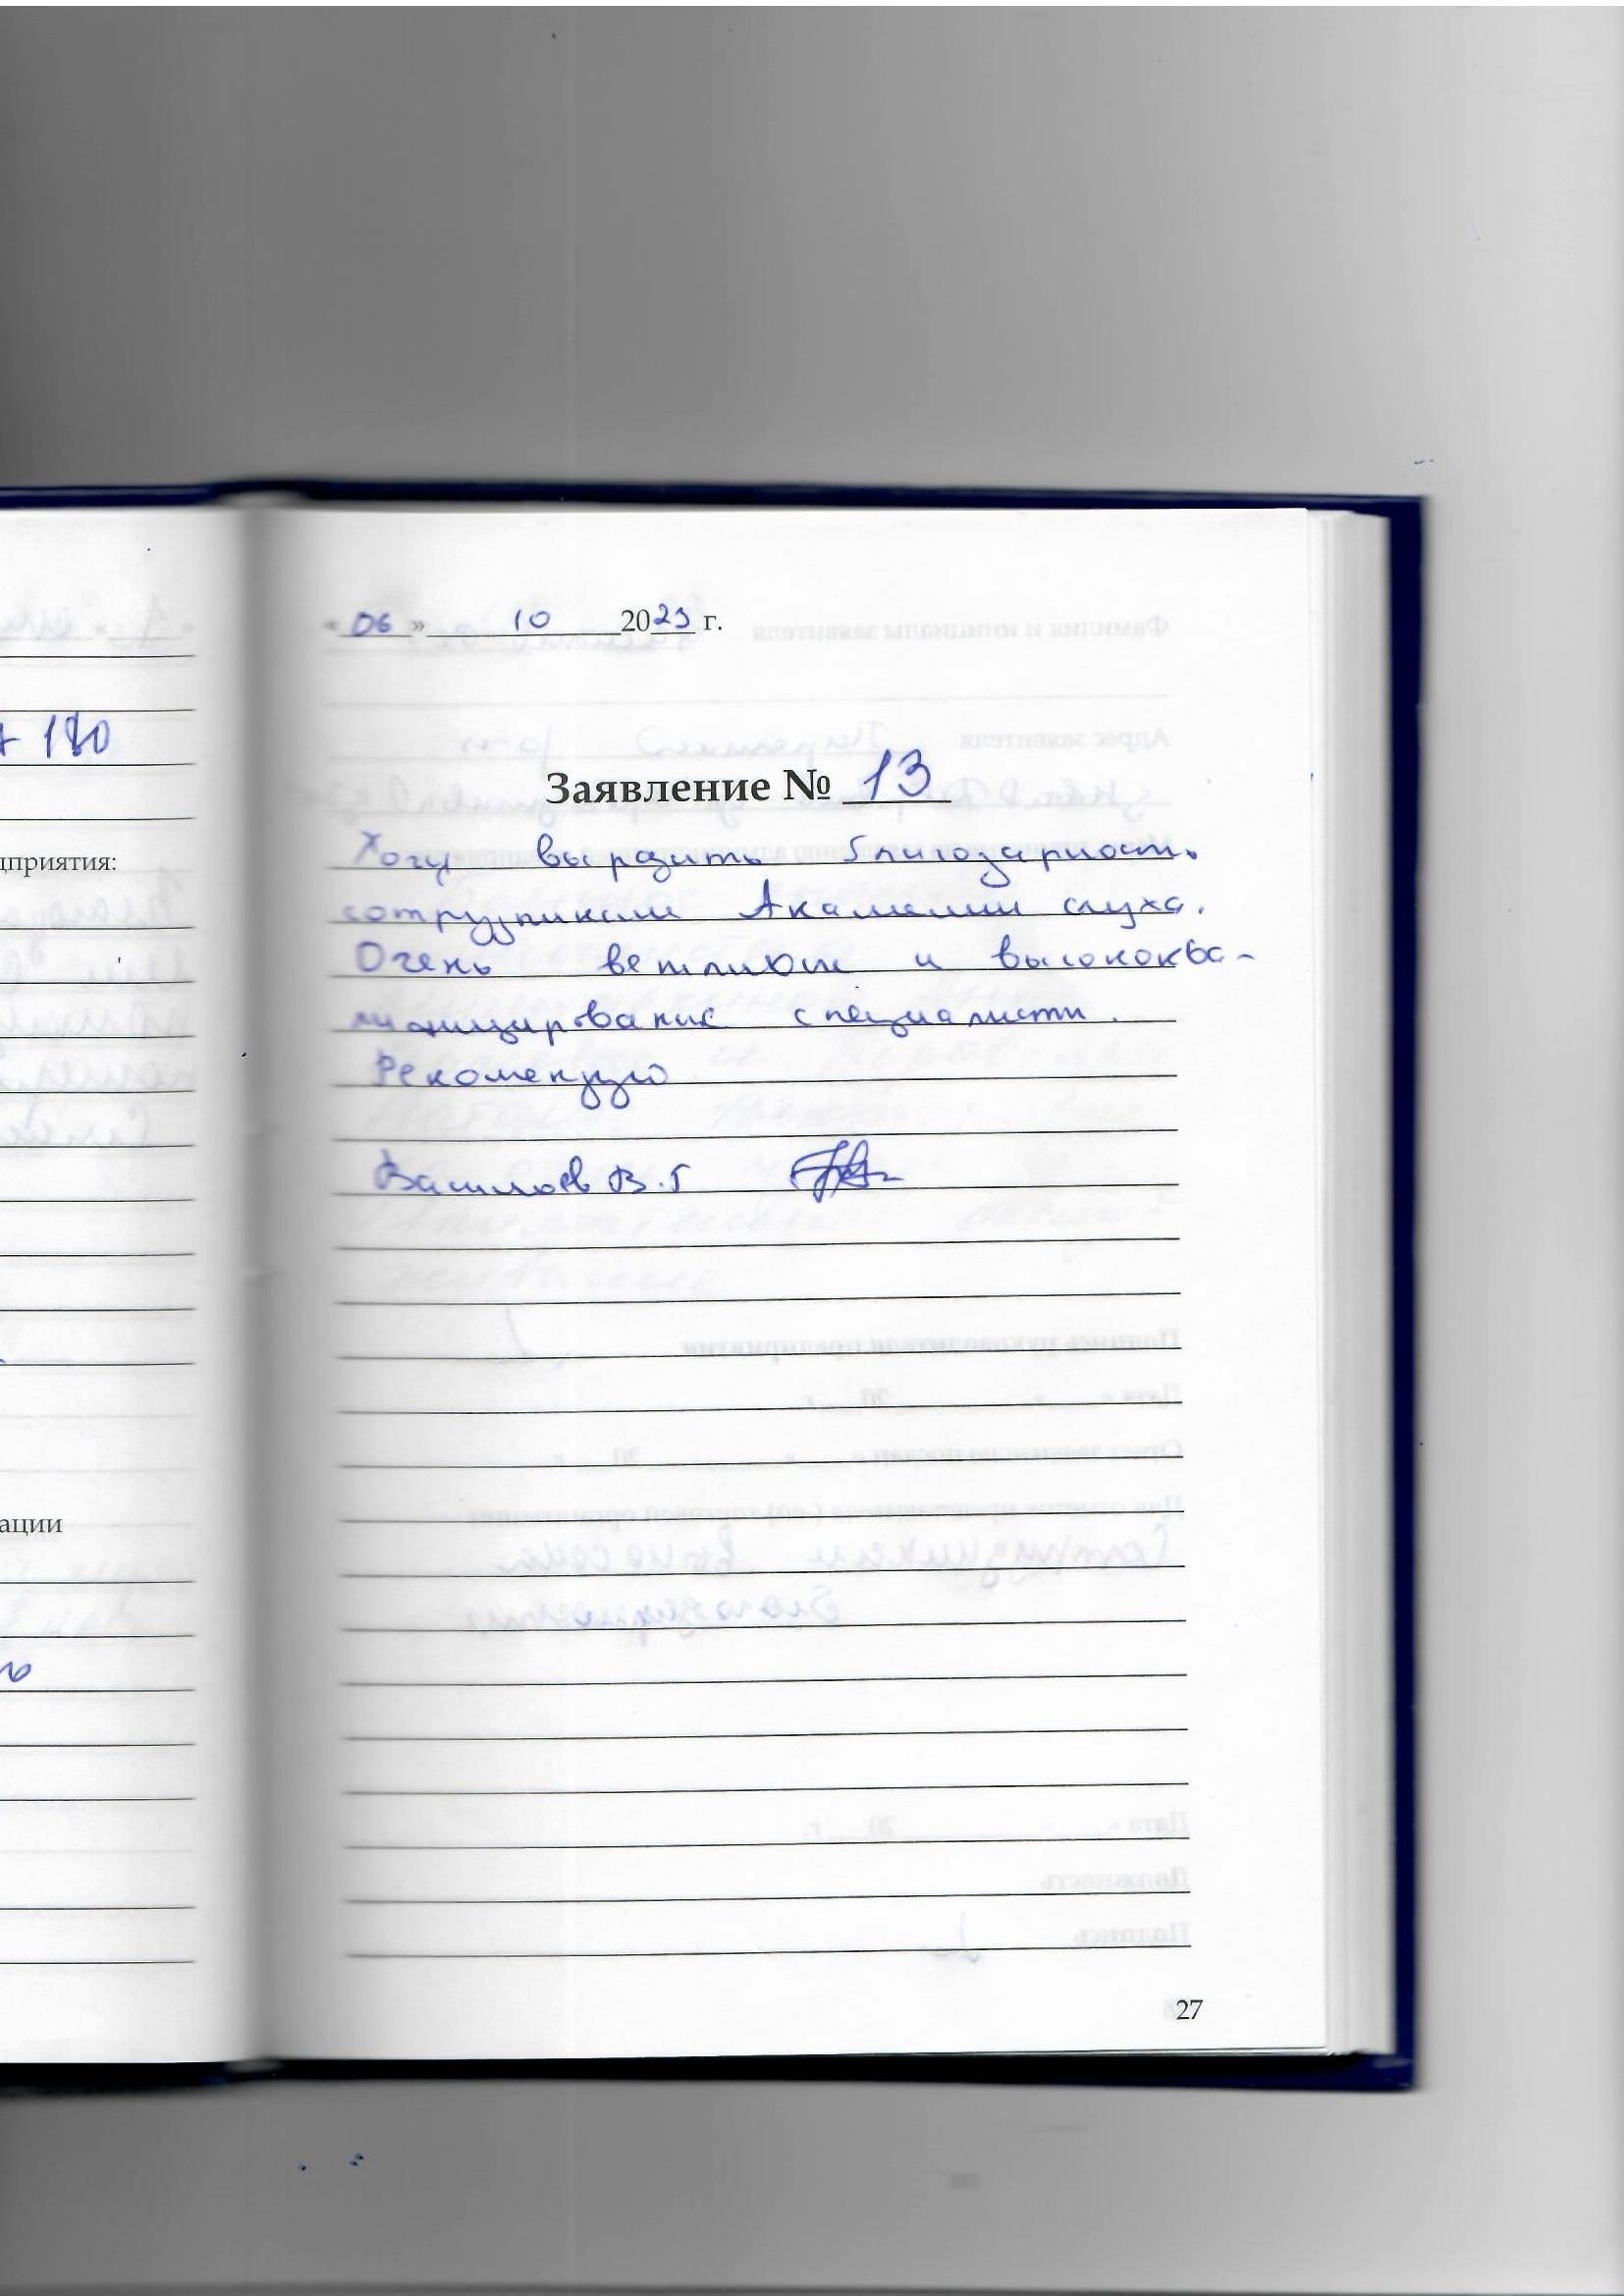 « 06 » 10 2023 г.
+ 180
Заявление № 13
Хочу выразить благодарность
дприятия:
сотрудникам Академии слуха.
Очень вежливые и высококва-
лифицирование специалисты.
Рекомендую
Васильев В.Г
ации
27